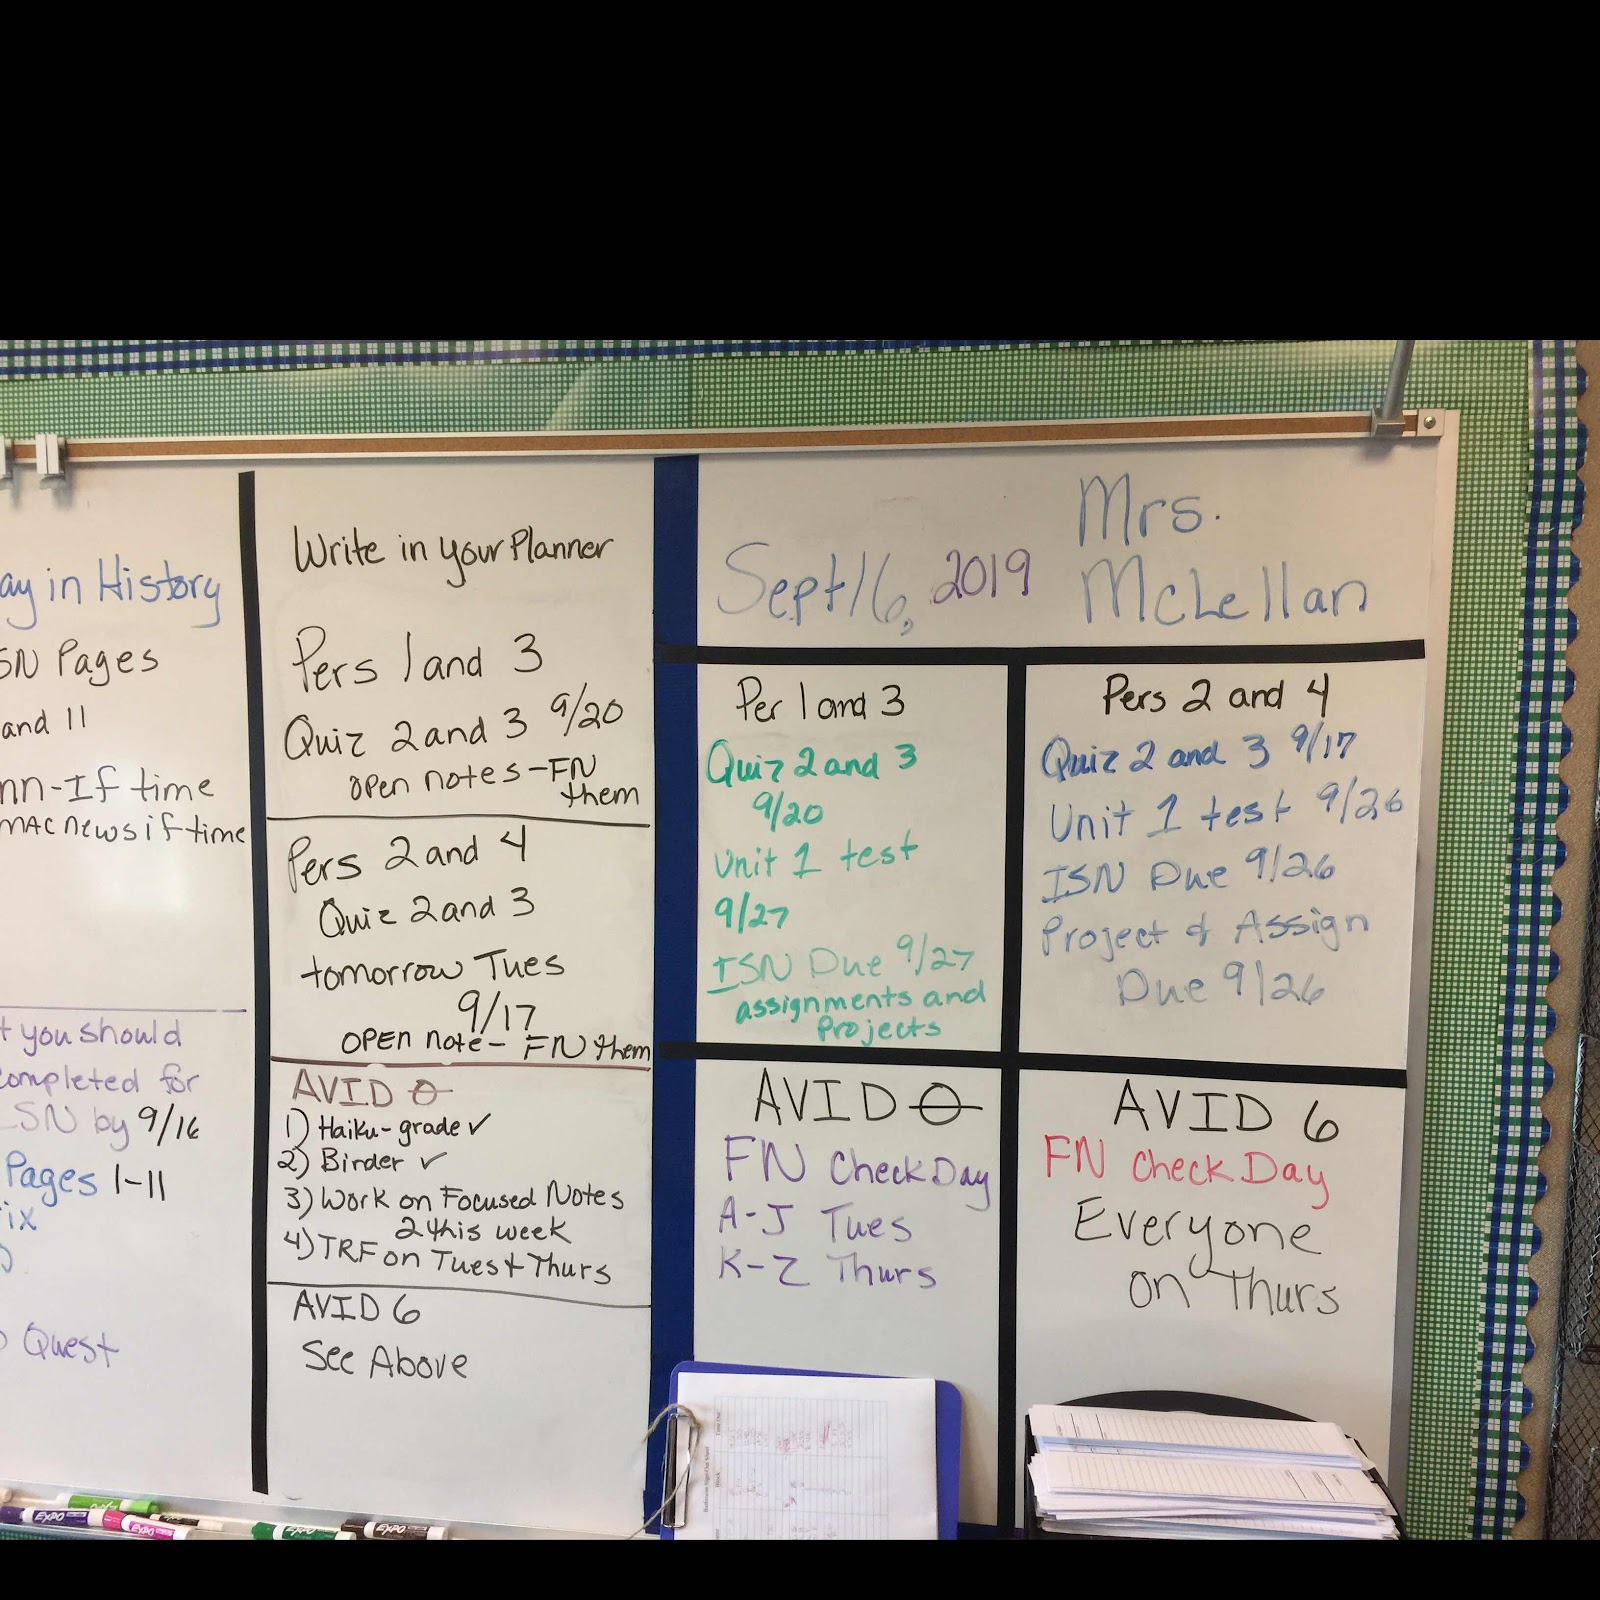 ay in History
SN Pages
and 11
nn-If time
MAC news if time
t you should
completed for
ISN by 9/16
Pages 1-11
ix
Quest
Write in your Planner
Pers 1 and 3
Quiz 2 and 3 9/20
open notes-FN
them
Pers 2 and 4
Quiz 2 and 3
tomorrow Tues
9/17
OPEN note- FN them
AVID 0
1) Haiku-grade ✓
2) Binder ✓
3) Work on Focused Notes
2 this week
4) TRF on Tues + Thurs
AVID 6
See Above
Sept 16, 2019
Mrs.
McLellan
Per 1 and 3
Quiz 2 and 3
9/20
Unit 1 test
9/27
ISN Due 9/27
assignments and
Projects
Pers 2 and 4
Quiz 2 and 3 9/17
Unit 1 test 9/26
ISN Due 9/26
Project & Assign
Due 9/26
AVID 0
FN Check Day
A-J Tues
K-Z Thurs
AVID 6
FN Check Day
Everyone
on Thurs
EXPO
EXPO
EXPO
EXPO